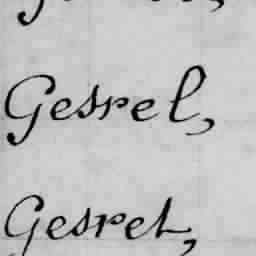 Gesrel,
Gesret,